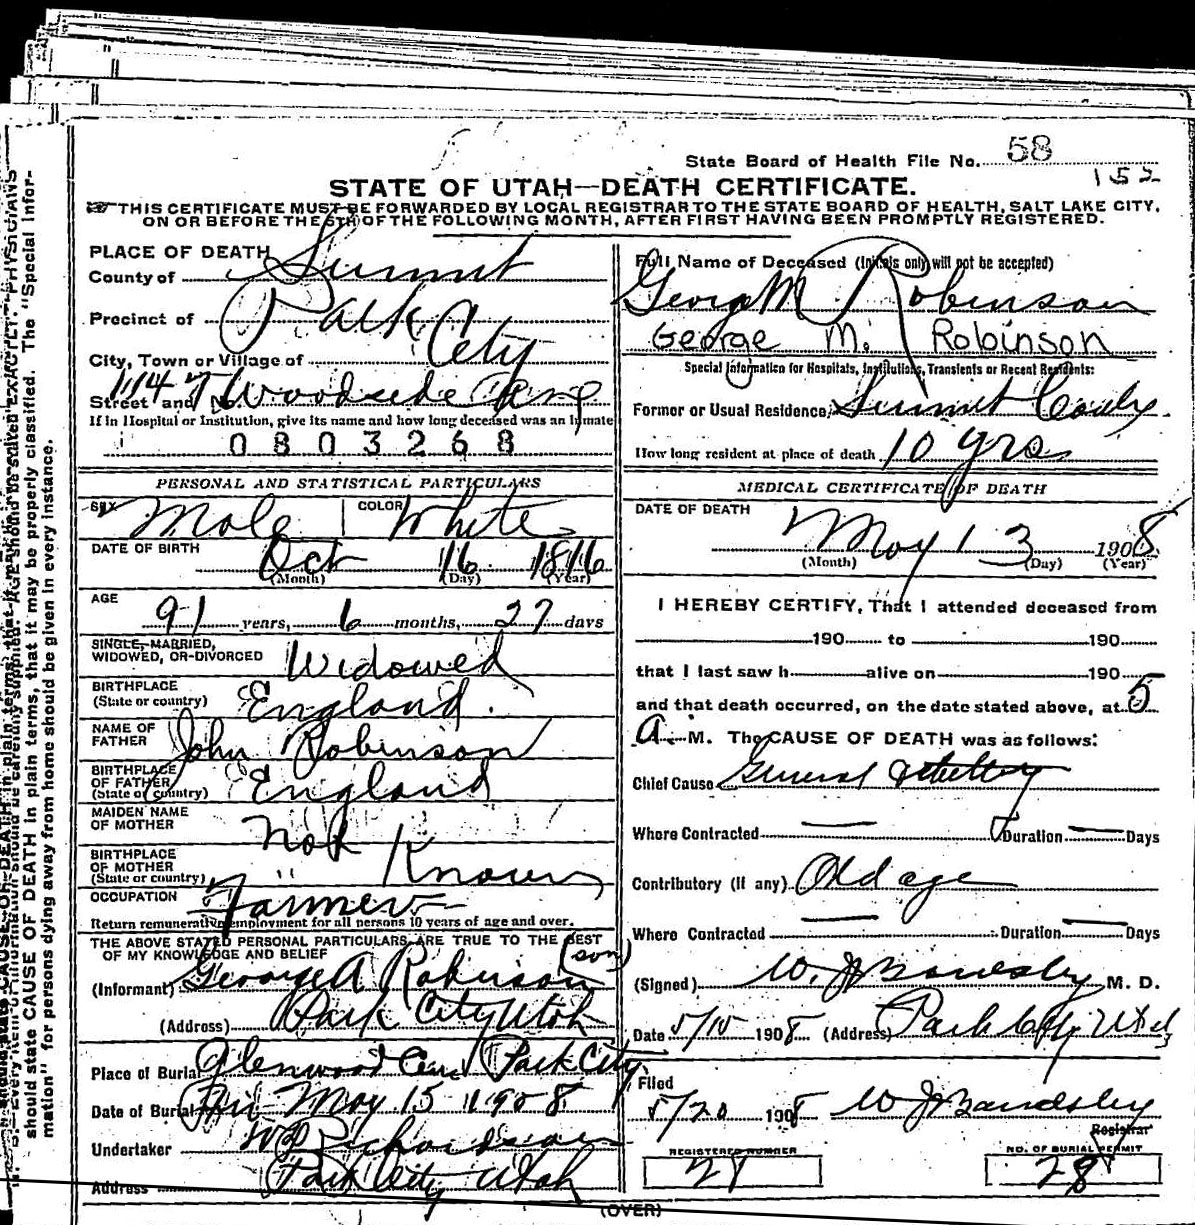 State Board of Health File No. 58
155
STATE OF UTAH—DEATH CERTIFICATE.
THIS CERTIFICATE MUST BE FORWARDED BY LOCAL REGISTRAR TO THE STATE BOARD OF HEALTH, SALT LAKE CITY,
ON OR BEFORE THE 5TH OF THE FOLLOWING MONTH, AFTER FIRST HAVING BEEN PROMPTLY REGISTERED.
PLACE OF DEATH
County of Summit
Precinct of Park City
City, Town or Village of
Street and No. 1147 Woodside
If in Hospital or Institution, give its name and how long deceased was an inmate
0803268
PERSONAL AND STATISTICAL PARTICULARS
SEX Male COLOR White
DATE OF BIRTH Oct 16 1816
(Month) (Day) (Year)
AGE 91 years, 6 months, 27 days
SINGLE, MARRIED,
WIDOWED, OR DIVORCED Widowed
BIRTHPLACE
(State or country) England.
NAME OF
FATHER John Robinson
BIRTHPLACE
OF FATHER
(State or country) England
MAIDEN NAME
OF MOTHER Not
BIRTHPLACE
OF MOTHER
(State or country) " Known
OCCUPATION Farmer
Return remunerative employment for all persons 10 years of age and over.
THE ABOVE STATED PERSONAL PARTICULARS ARE TRUE TO THE BEST
OF MY KNOWLEDGE AND BELIEF (son)
(Informant) George A Robinson
(Address) Park City Utah
Place of Burial Glenwood Cem Park City
Date of Burial Fri May 15 1908
Undertaker Richardson
Address Park City Utah
Full Name of Deceased (Initials only will not be accepted)
George M Robinson
George M. Robinson
Special Information for Hospitals, Institutions, Transients or Recent Residents:
Former or Usual Residence Summit County
How long resident at place of death 10 yrs
MEDICAL CERTIFICATE OF DEATH
DATE OF DEATH
May 13 1908
(Month) (Day) (Year)
I HEREBY CERTIFY, That I attended deceased from
190 to 190
that I last saw h alive on 190
and that death occurred, on the date stated above, at 5
A. M. The CAUSE OF DEATH was as follows:
Chief Cause General debility
Where Contracted — Duration — Days
Contributory (if any) Old age
Where Contracted — Duration — Days
(Signed) W. J. Bardsley M. D.
Date 5/15 1908 (Address) Park City Utah
Filed
5/20 1908 W J Bardsley
Registrar
REGISTERED NUMBER
21
NO. OF BURIAL PERMIT
28
(OVER)
should state CAUSE OF DEATH in plain terms, that it may be properly classified. The "Special Infor-
mation" for persons dying away from home should be given in every instance.